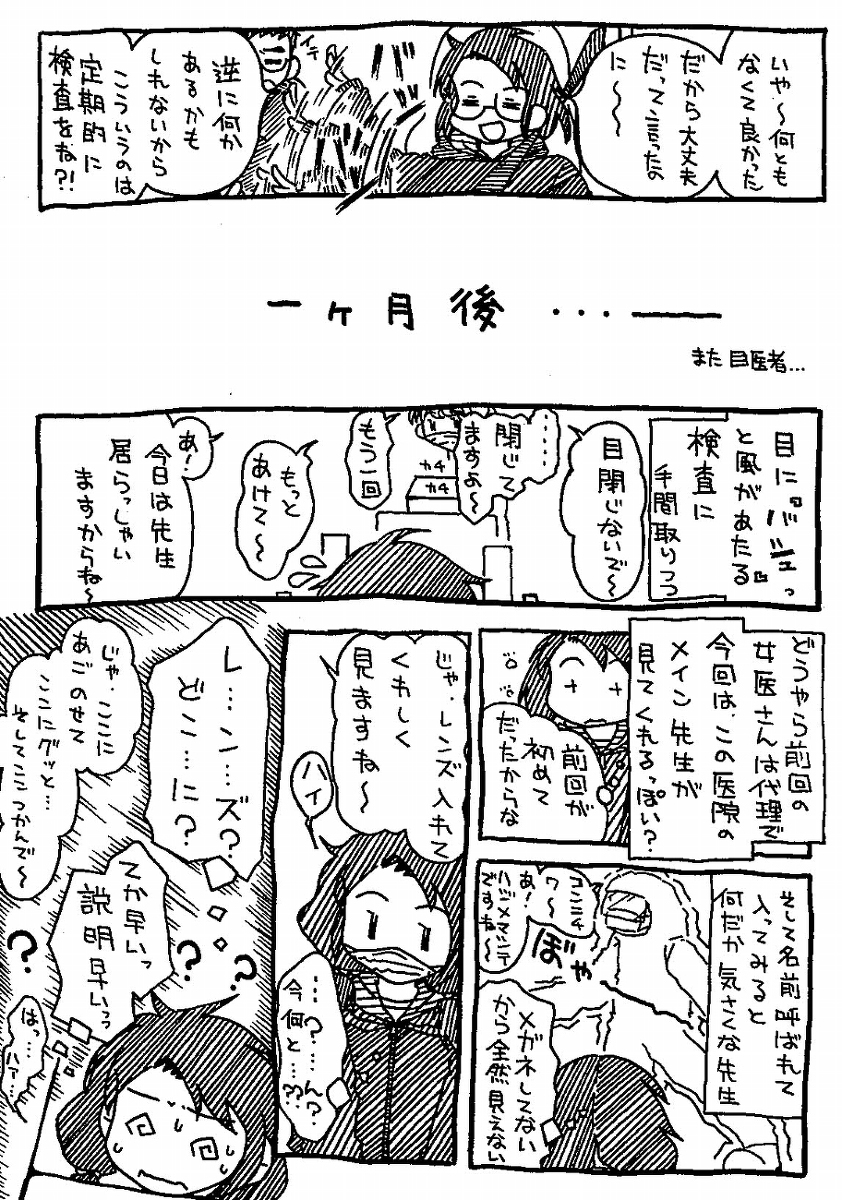 いや〜何とも
なくて良かった
だから大丈夫
だって言ったの
に〜
イテ
逆に何か
あるかも
しれないから
こういうのは
定期的に
検査をね?!
一ヶ月後…――
また目医者…
目に"バシュっ"
と風があたる
検査に
手間取りつつ
目閉じないで〜
……
閉じて
ますよ〜
カチ
カチ
もう一回
もっと
あけて〜
あ!
今日は先生
居らっしゃい
ますからね〜
どうやら前回の
女医さんは代理で
今回は、この医院の
メイン先生が
見てくれるっぽい?
前回が
初めて
だったからな
そして名前呼ばれて
入ってみると
何だか気さくな先生
コンニチ
ワ〜
あ!
ハジメマシテ
ですね〜
ぼや
メガネしてない
から全然見えない
じゃ、レンズ入れて
くわしく
見ますね〜
ハイ
…?…ん?
今何と…??
レ…ン…ズ?
どこ…に?
じゃ、ここに
あごのせて
ここにグッと…
そしてここつかんで〜
てか早いっ
説明早いっ
?
?
?
は、…
ハイ…